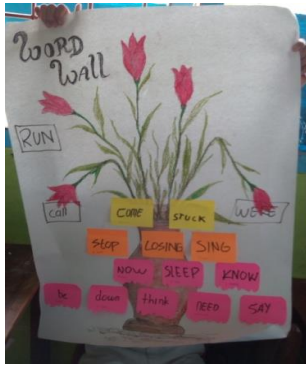 WORD
WALL
RUN
call COME stuck WERE
STOP LOSING SING
NOW SLEEP KNOW
be down think NEED SAY